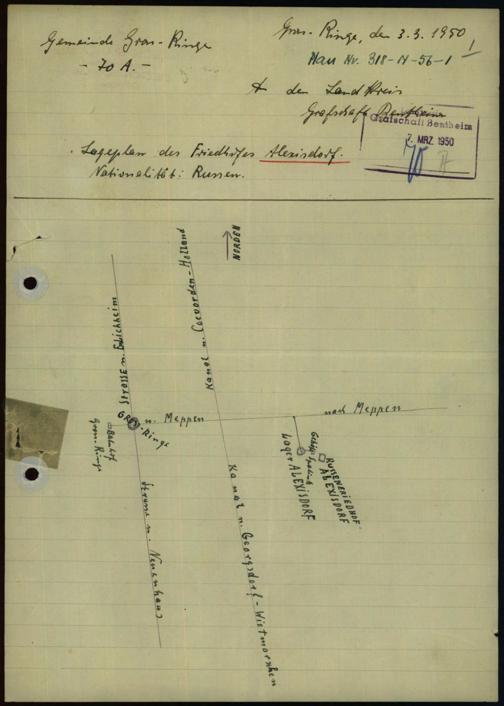 Gemeinde Gros-Ringe
- 70 A. -
Gros-Ringe, den 3.3.1950
1
Man Nr. 318-N-56-1
den Land Kreis
Grafschaft Bentheim
Grafschaft Bentheim
7. MRZ. 1950
Lageplan des Friedhofes Alexisdorf.
Nationalität: Russen.
NORDEN
Kanal n. Coevorden-Holland
Strasse n. Emlichheim
n. Meppen
nach Meppen
Gros-Ringe
Bahnhof
Gross Ringe
Lager ALEXISDORF
RUSSENFRIEDHOF
ALEXISDORF
Strasse n. Neuenhaus
Kanal n. Georgsdorf-